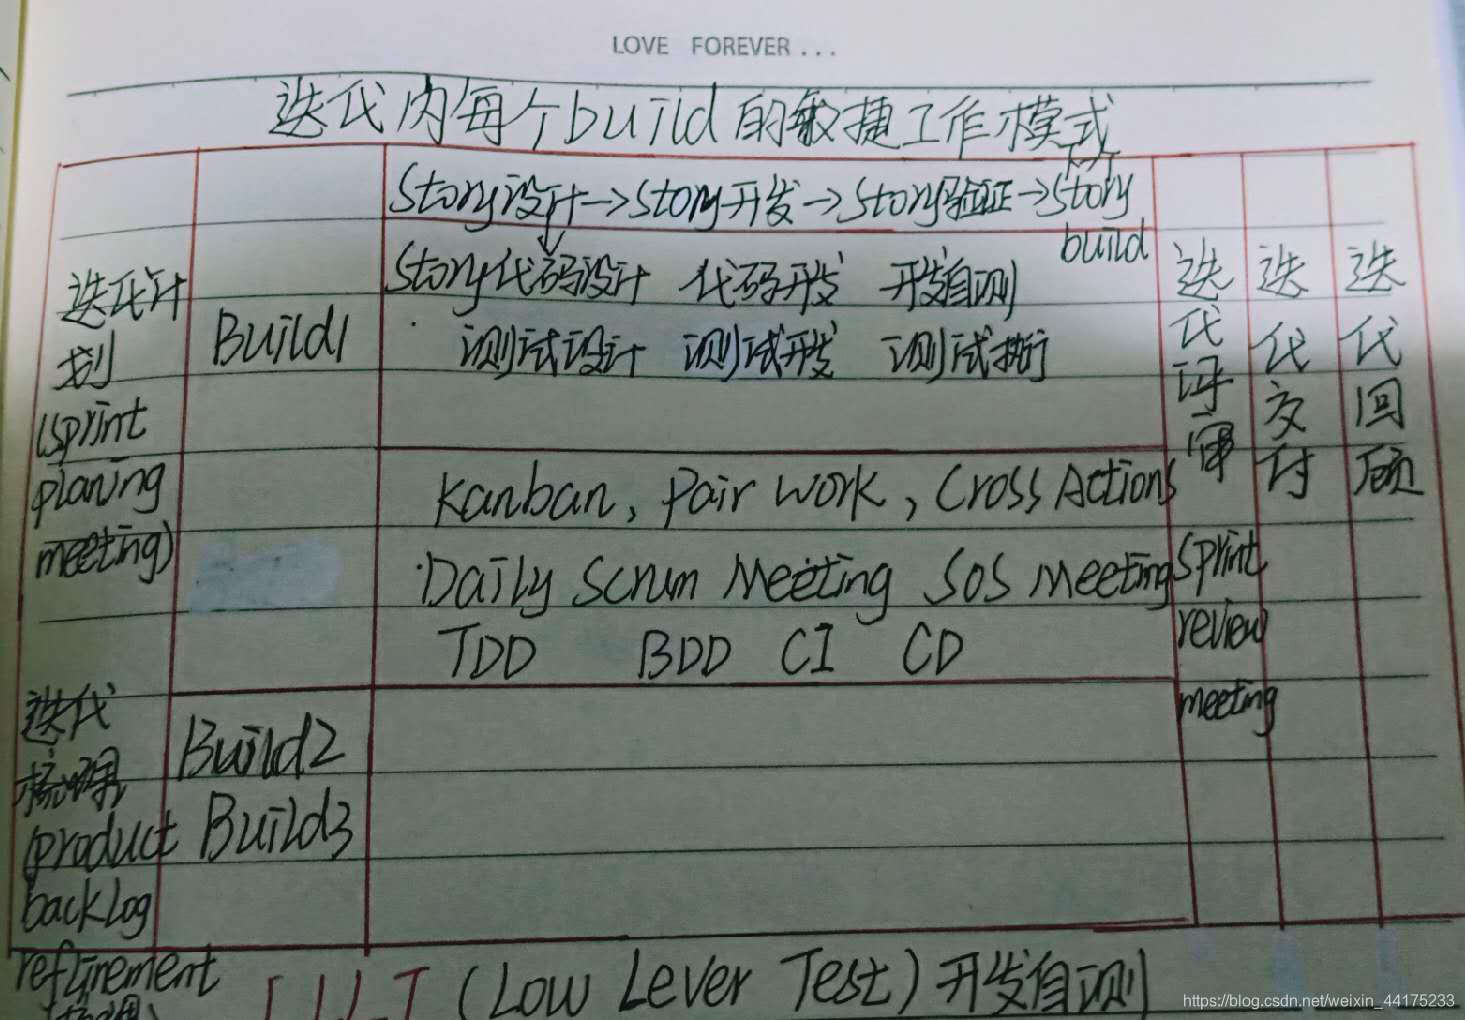 LOVE FOREVER...
迭代内每个build的敏捷工作模式
Story设计→Story开发→Story验证→Story
build
Story代码设计 代码开发 开发自测
测试设计 测试开发 测试执行
迭代计
划
(sprint
planing
meeting)
Build1
Kanban, Pair Work, Cross Actions
Daily Scrum Meeting SOS Meeting
TDD BDD CI CD
迭代
梳理
(product
backLog
refinement
Build2
Build3
迭代评审
sprint
review
meeting
迭代交付
迭代回顾
LLT (Low Lever Test) 开发自测
https://blog.csdn.net/weixin_44175233